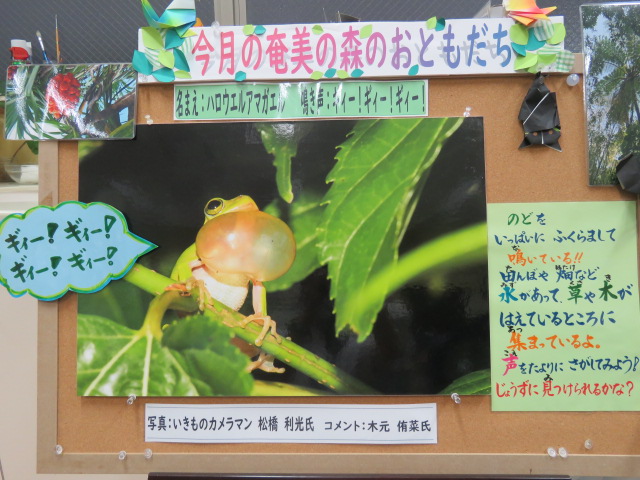 今月の奄美の森のおともだち
名まえ：ハロウエルアマガエル 鳴き声：ギィー！ギィー！ギィー！
ギィー！ギィー！
ギィー！ギィー！
のどを
いっぱいに ふくらまして
鳴いている!!
田んぼや 畑など
水があって、草や木が
はえているところに
集まっているよ。
声をたよりに さがしてみよう!
じょうずに 見つけられるかな？
写真：いきものカメラマン 松橋 利光氏 コメント：木元 侑菜氏